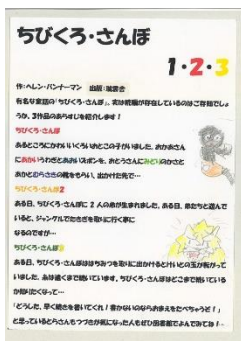 ちびくろ・さんぼ
1・2・3
作:ヘレン・バンナーマン 出版:瑞雲舎
有名な童話の「ちびくろ・さんぼ」。実は続編が存在しているのはご存知でしょ
うか。3作品のあらすじを紹介します!
ちびくろ・さんぼ
あるところにかわいいくろいおとこの子がいました。おかあさん
にあかいうわぎとあおいズボンを、おとうさんにみどりのかさと
あかとむらさきの靴をもらい、出かけた先で…
ちびくろ・さんぼ2
ある日、ちびくろ・さんぼに2人の弟が生まれました。ある日、弟たちと遊んで
いると、ジャングルでたきぎを取りに行く事に
なるのですが…
ちびくろ・さんぼ3
ある日、ちびくろ・さんぼははちみつを取りに出かけるとけいとの玉が転がって
いました。糸は遠くまで続いています。ちびくろ・さんぼはどこまで続いている
か知りたくなって…
「どうした、早く続きを書いてくれ!書かないのならおまえをたべちゃうぞ!」
と思っているとらさんもつづきが気になった人もぜひ図書館でよんでみてね!